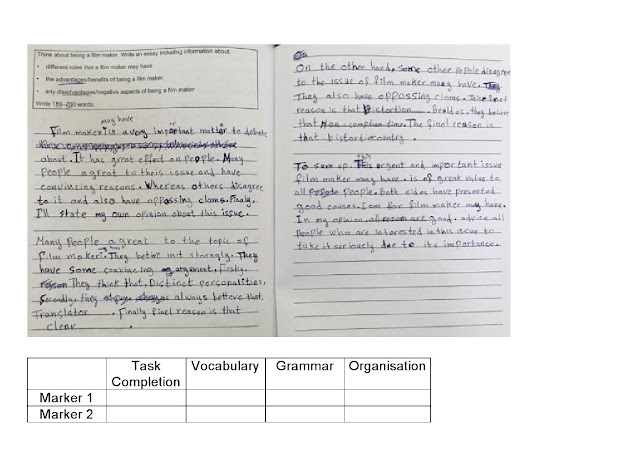 Think about being a film maker. Write an essay including information about:
• different roles that a film maker may have
• the advantages/benefits of being a film maker
• any disadvantages/negative aspects of being a film maker
Write 180-200 words.
may have
Film maker is a very important matter to debate
about. It has great effect on people. Many
people agreat to theis issue and have
convincing reasons. Whereas others disagree
to it and also have oppossing clams. Finaly,
I'll state my own opinion about this issue.
Many people agreat to the topic of
film maker. They it starngly. They
have some convincing argument, Firstly,
They think that. Distinct personalities,
Secondly, they always beltheve that.
Translator . Finally reason is that
clear .
On the other hand, some other people disagree
to the issue of film maker many have.
They also have oppossing clams. first
reason is that Bistortion. Besides, they believe
that time. The final reason is
that bistord country.
To sam up. This urgent and important issue
film maker many have. is of great value to
all people. Both sides have presented
good causes. I am for film maker may have.
In my opinion all reason are good. advise all
people who are interested in this issue to
take it seriously due to its importance.
Task Completion Vocabulary Grammar Organisation
Marker 1
Marker 2